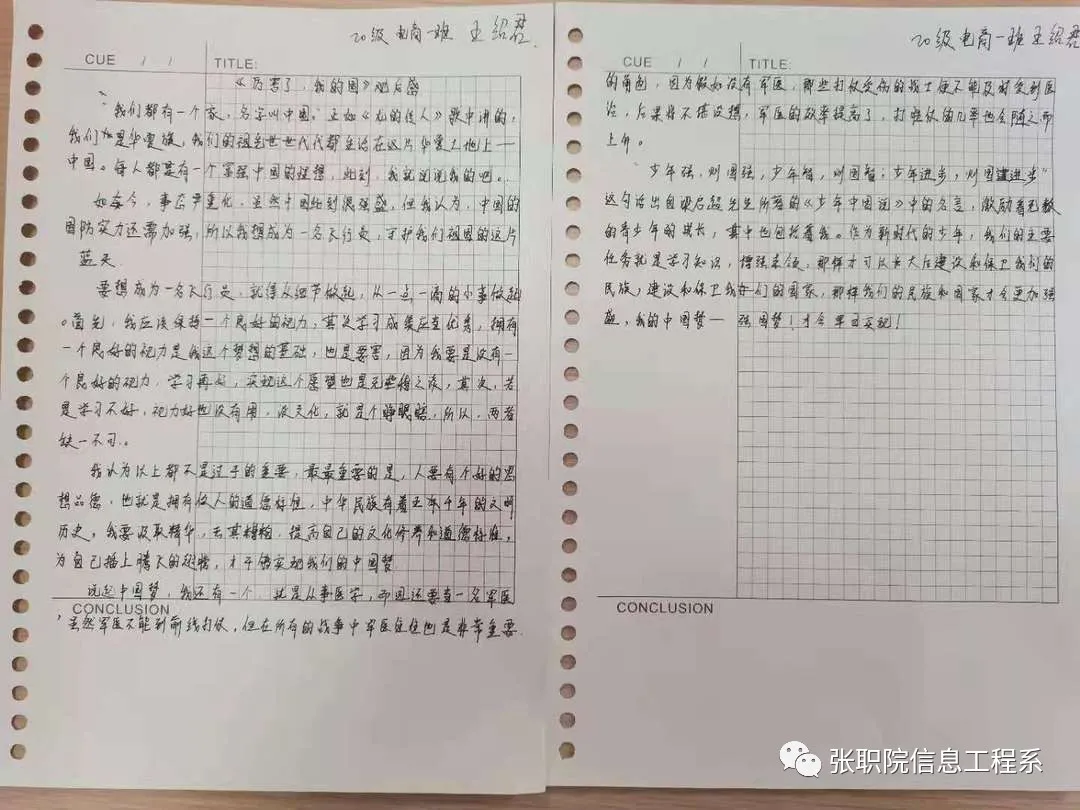 20级电商一班 王绍君.
CUE / / TITLE:
《厉害了，我的国》观后感
“我们都有一个家，名字叫中国。”正如《龙的传人》歌中讲的，
我们都是华夏族，我们的祖先世世代代都生活在这片华夏之地上——
中国。每人都是有一个富强中国的理想，此刻，我就说说我的吧。
如在今，事态严重化，虽然中国此刻很强盛，但我认为，中国的
国防实力还需加强，所以我想成为一名飞行员，守护我们祖国的这片
蓝天
要想成为一名飞行员，就得从细节做起，从一点一滴的小事做起
。首先，我应该保持一个良好的视力，其次学习成集应在优秀，拥有
一个良好的视力是我这个梦想的基础，也是要害，因为我要是没有一
个良好的视力，学习再好，实现这个愿望也是无些稽之谈，其次，若
是学习不好，视力好也没有用，没文化，就是个睁眼瞎，所以，两者
缺一不可。
我认为以上都不是过于的重要，最最重要的是，人要有个好的思
想品德，也就是拥有做人的道德标准，中华民族有着五千年的文明
历史，我要汲取精华，去其糟粕，提高自己的文化修养和道德标准，
为自己插上腾飞的翅膀，才干能实现我们的中国梦
说起中国梦，我还有一个，就是从事医学，而且还要当一名军医
CONCLUSION
，虽然军医不能到前线打仗，但在所有的战争中军医往往也是非常重要
20级电商一班王绍君
CUE / / TITLE:
的角色，因为假如没有军医，那些打仗受伤的战士便不能及时受到医
治，后果将不堪设想，军医的效率提高了，打胜仗的几率也会随之而
上升。
“少年强，则国强，少年智，则国智；少年进步，则国进步”
这句话出自梁启超先生所著的《少年中国说》中的名言，激励着无数
的青少年的成长，其中也包括着我。作为新时代的少年，我们的主要
任务就是学习知识，增强本领，那样才可以长大后建设和保卫我们的
民族，建设和保卫我们的国家，那样我们的民族和国家才会更加强
盛，我的中国梦——强国梦！才会早日实现！
CONCLUSION
张职院信息工程系